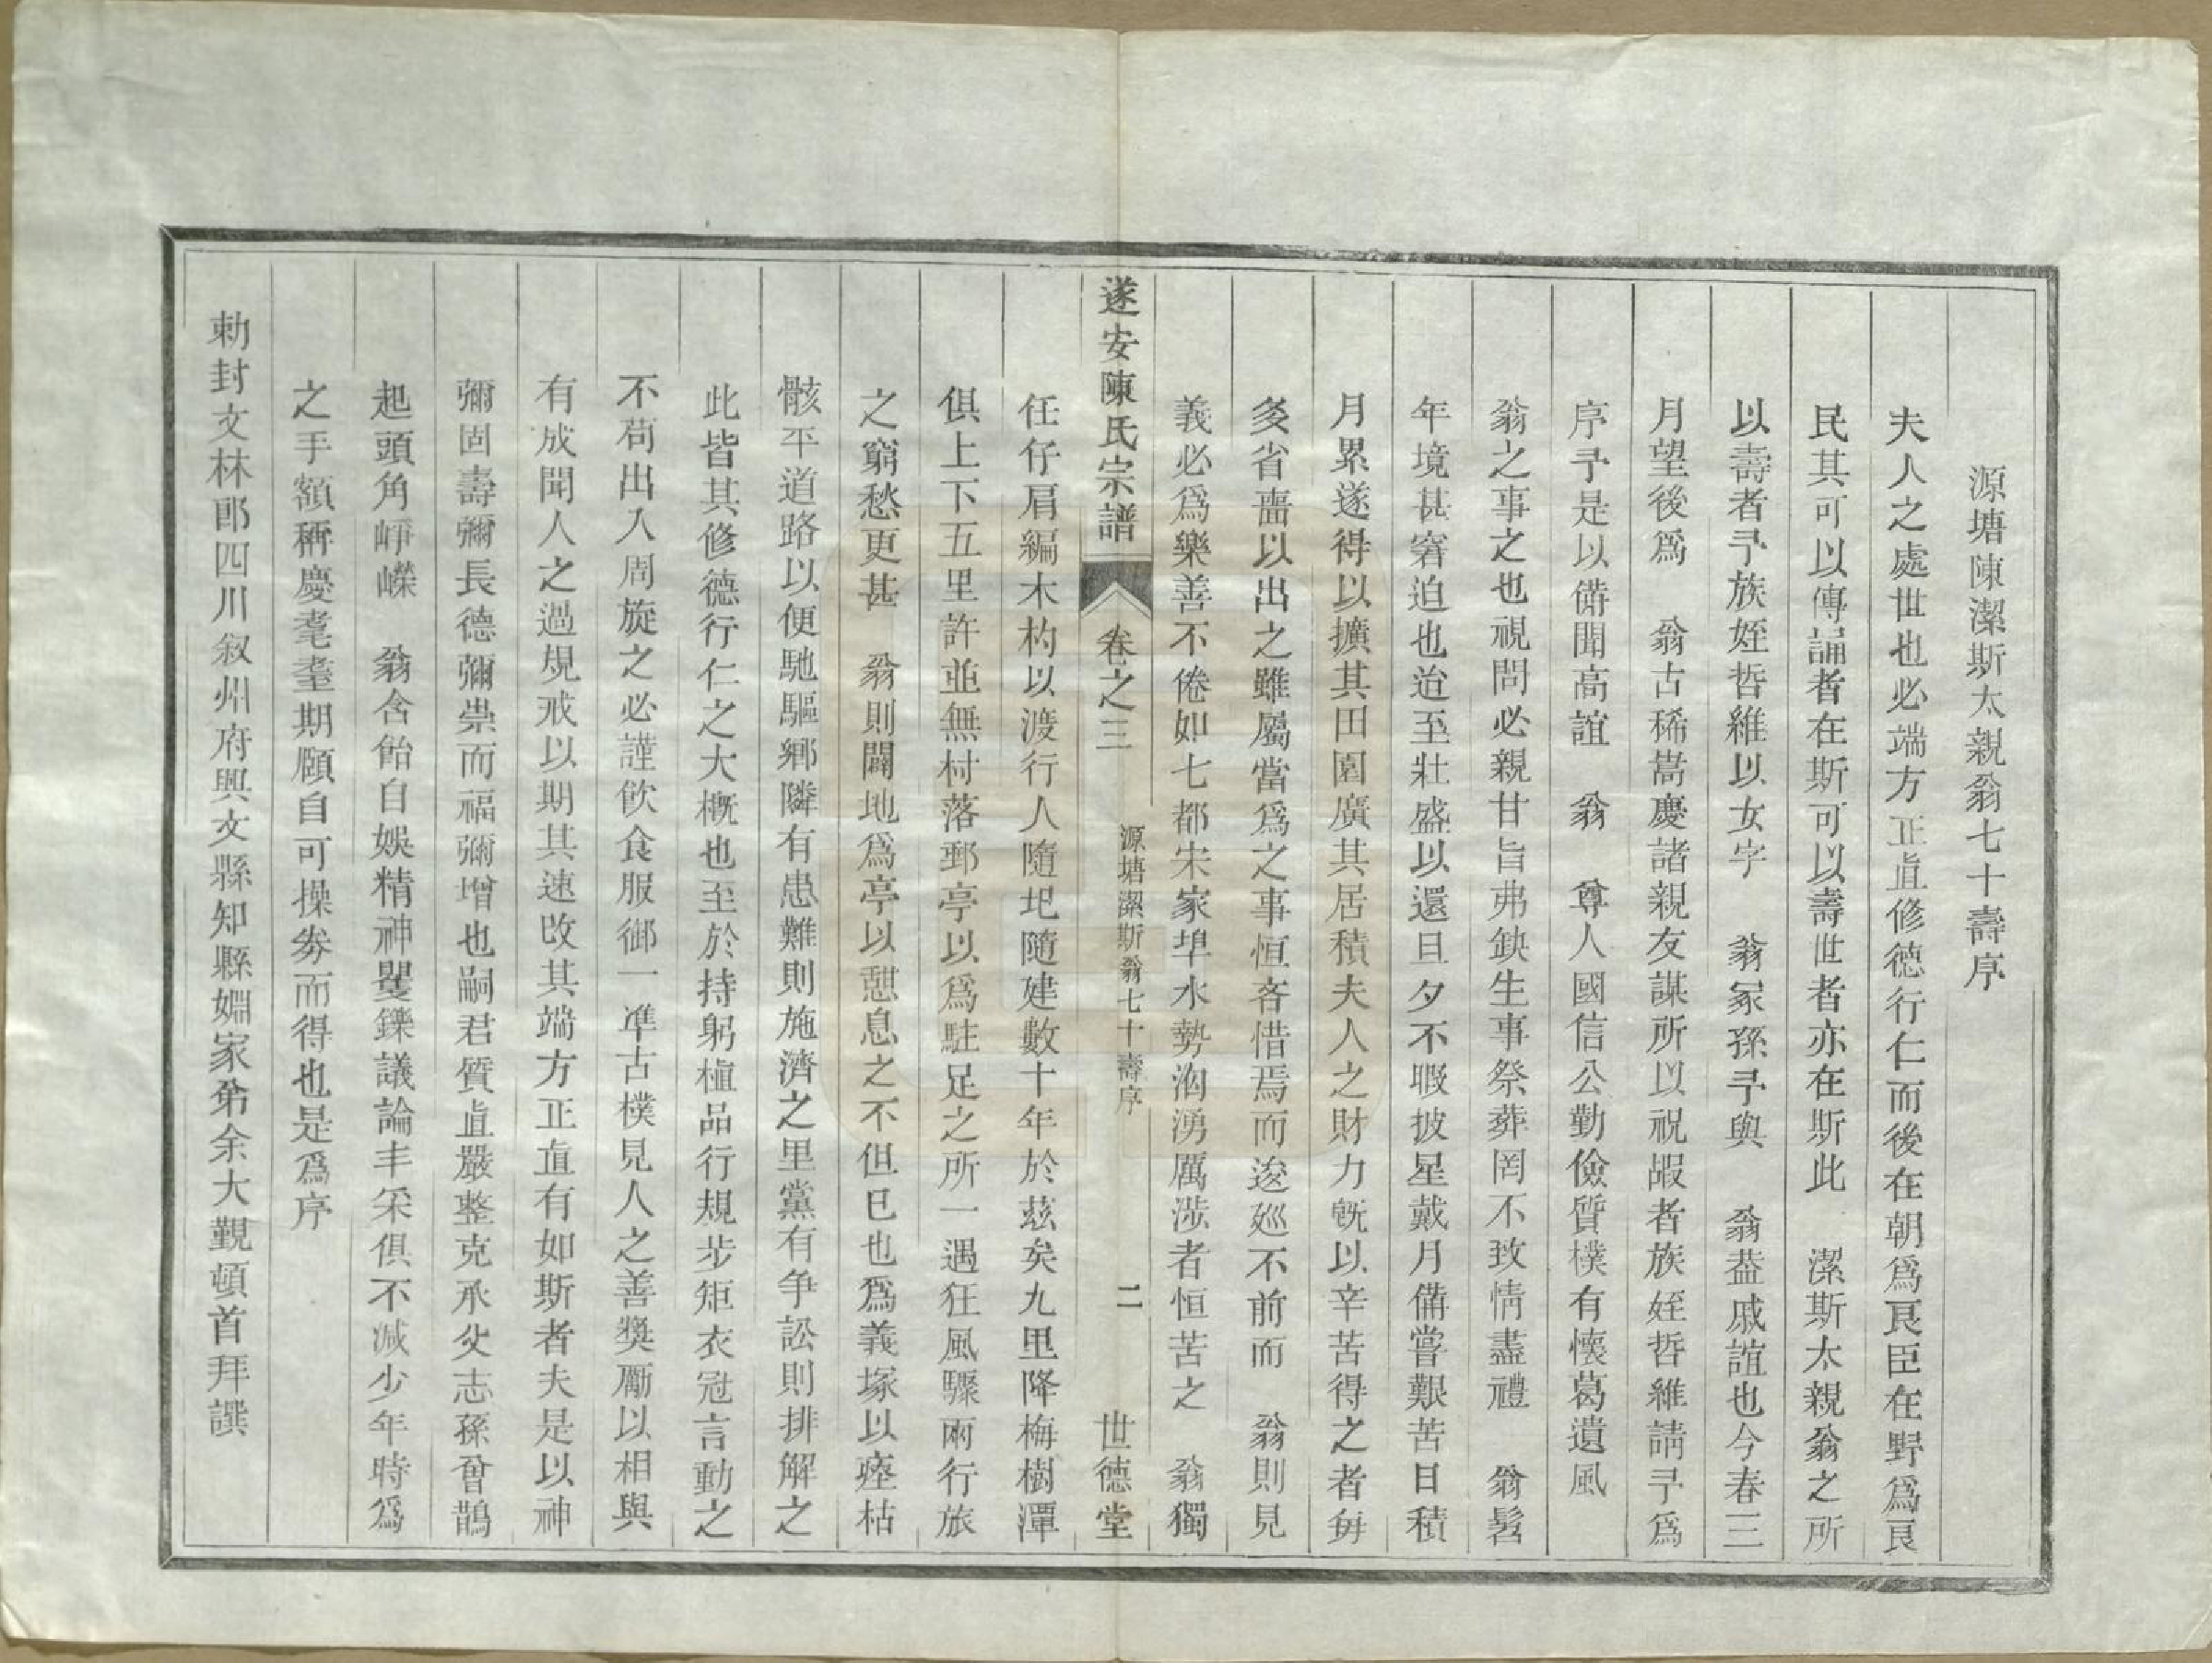 源塘陳潔斯太親翁七十壽序
夫人之處世也必端方正直修德行仁而後在朝爲良臣在野爲良
民其可以傳誦者在斯可以壽世者亦在斯此　潔斯太親翁之所
以壽者予族姪哲維以女字　翁冡孫予與　翁葢戚誼也今春三
月望後爲　翁古稀嵩慶諸親友謀所以祝嘏者族姪哲維請予爲
序予是以備聞高誼　翁　尊人國信公勤儉質樸有懷葛遺風
翁之事之也視問必親甘旨弗缺生事祭葬罔不致情盡禮　翁髫
年境甚窘迫也迨至壯盛以還旦夕不暇披星戴月備嘗艱苦日積
月累遂得以擴其田園廣其居積夫人之財力旣以辛苦得之者每
多省嗇以出之雖屬當爲之事恒吝惜焉而逡巡不前而　翁則見
義必爲樂善不倦如七都宋家埠水勢洶湧厲涉者恒苦之　翁獨
遂安陳氏宗譜　卷之三　源塘潔斯翁七十壽序　二　世德堂
任仔肩編木杓以渡行人隨圯隨建數十年於茲矣九里降梅樹潭
俱上下五里許並無村落郵亭以爲駐足之所一遇狂風驟雨行旅
之窮愁更甚　翁則闢地爲亭以憩息之不但已也爲義塚以瘞枯
骸平道路以便馳驅鄉隣有患難則施濟之里黨有争訟則排解之
此皆其修德行仁之大概也至於持躬植品行規步矩衣冠言動之
不苟出入周旋之必謹飲食服御一準古樸見人之善獎勵以相與
有成聞人之過規戒以期其速改其端方正直有如斯者夫是以神
彌固壽彌長德彌崇而福彌增也嗣君質直嚴整克承父志孫曾鵲
起頭角崢嶸　翁含飴自娛精神矍鑠議論丰采俱不減少年時爲
之手額稱慶耄耋期頤自可操券而得也是爲序
勅封文林郎四川叙州府興文縣知縣姻家弟余大觀頓首拜譔